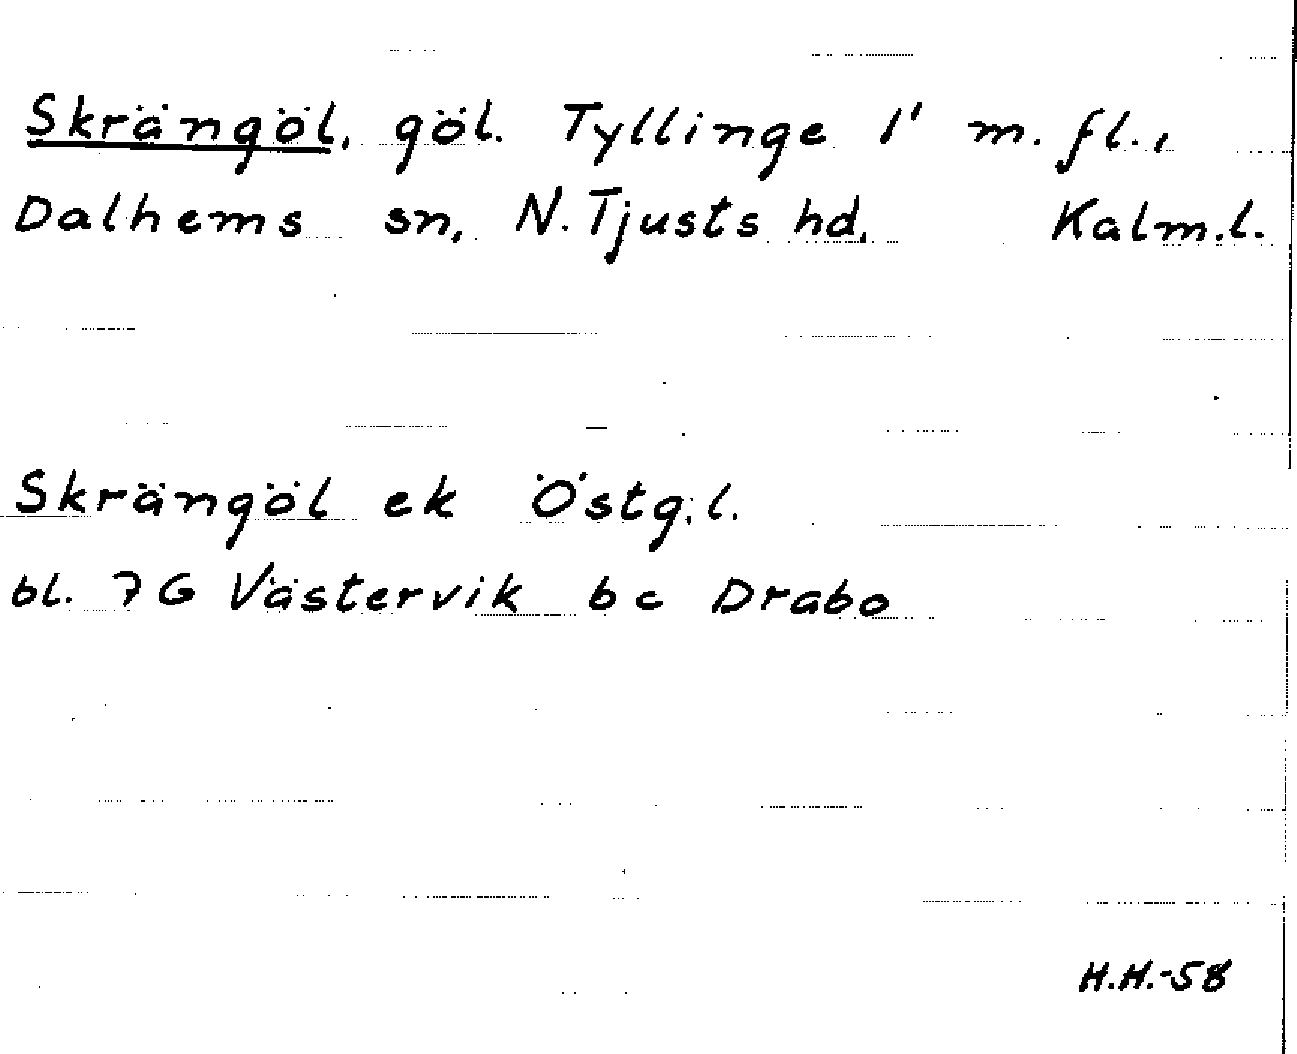 Skrängöl, göl. Tyllinge 1' m. fl.,
Dalhems sn, N. Tjusts hd, Kalm.l.
Skrängöl ek Östg.l.
bl. 7G Västervik bc Drabo
H.H.-58